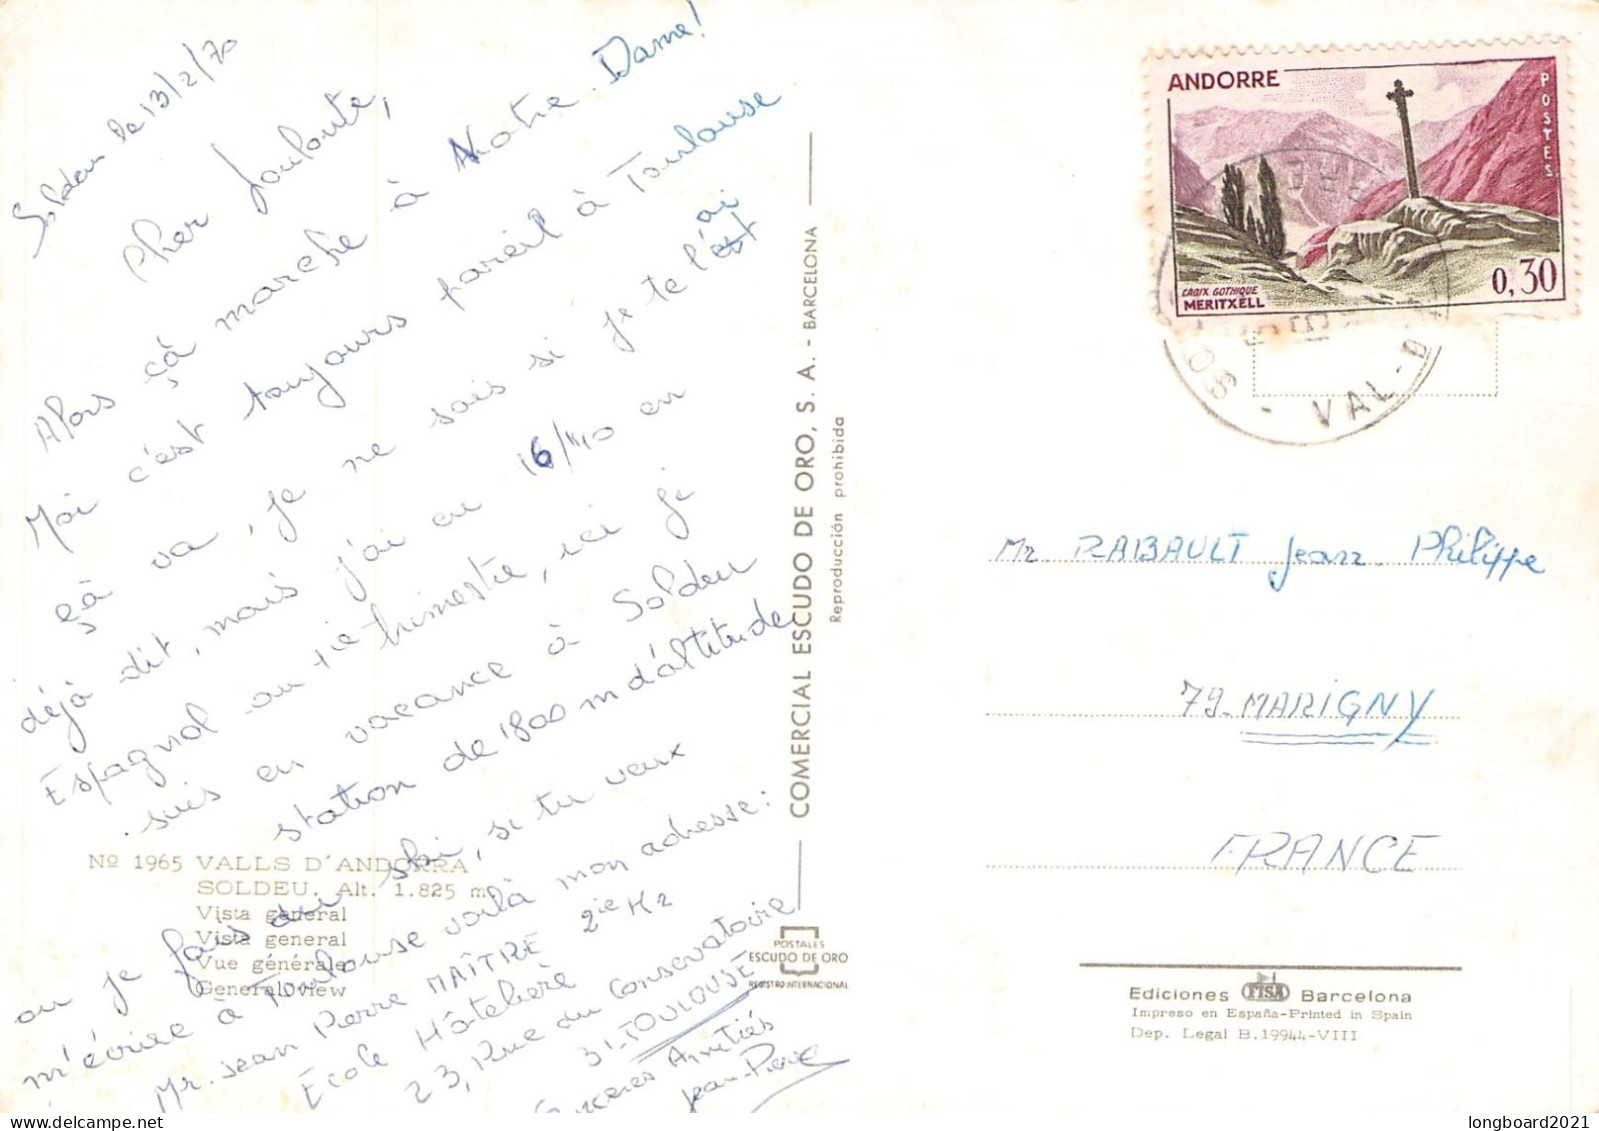 Soldeu le 13/2/70
Cher Louloute,
Alors çà marche à Notre-Dame!
Moi c'est toujours pareil à Toulouse
çà va, je ne sais si je te l'ai
déjà dit, mais j'ai eu 16/40 en
Espagnol au 1ie trimestre, ici je
suis en vacance à Soldeu
station de 1800 m d'altitude
ou je fais du ski, si tu veux
m'écrire à Toulouse voilà mon adresse:
Mr. Jean Pierre MAÎTRE 2ie H2
École Hôtelière
23, Rue du Conservatoire
31-TOULOUSE
Sincères Amitiés
Jean-Pierre
Nº 1965 VALLS D'ANDORRA
SOLDEU. Alt. 1.825 m.
Vista general
Vista general
Vue générale
General view
COMERCIAL ESCUDO DE ORO, S. A. - BARCELONA
Reproducción prohibida
POSTALES
ESCUDO DE ORO
REGISTRO INTERNACIONAL
ANDORRE
POSTES
CROIX GOTHIQUE
MERITXELL
0,30
VAL-D
Mr. RABAULT Jean-Philippe
79-MARIGNY
FRANCE
Ediciones FISA Barcelona
Impreso en España-Printed in Spain
Dep. Legal B. 19944-VIII
longboard2021